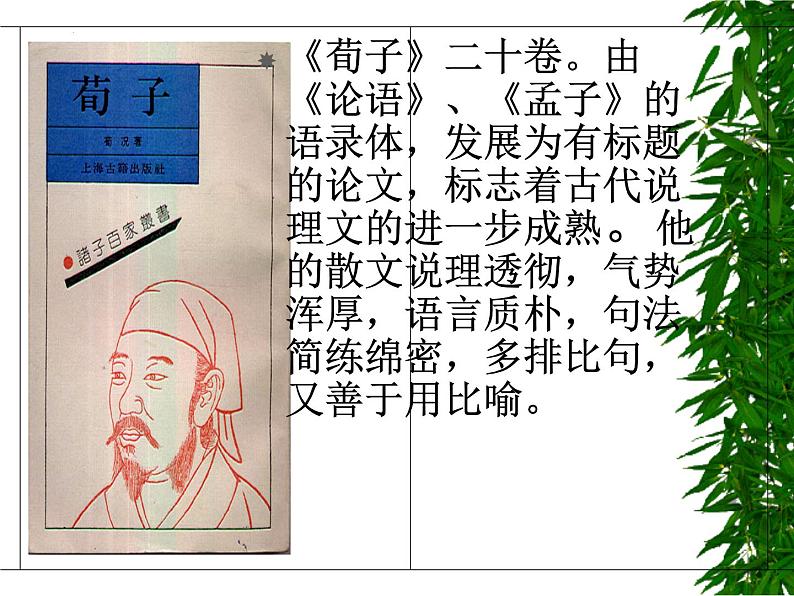 荀子
荀况著
上海古籍出版社
諸子百家叢書
《荀子》二十卷。由
《论语》、《孟子》的
语录体，发展为有标题
的论文，标志着古代说
理文的进一步成熟。 他
的散文说理透彻，气势
浑厚，语言质朴，句法
简练绵密，多排比句，
又善于用比喻。